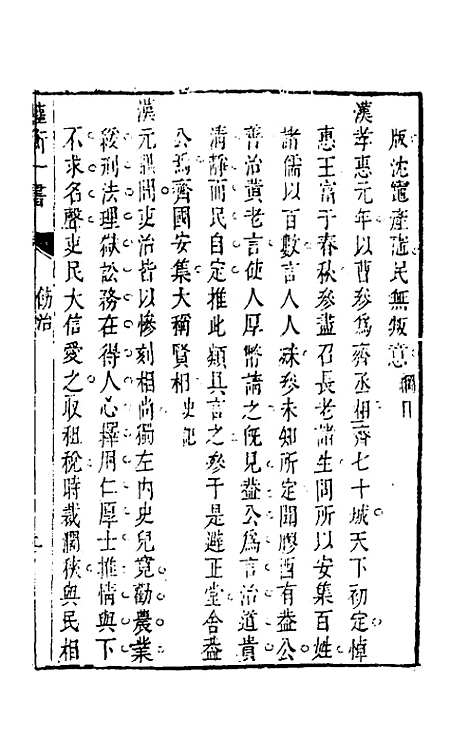 版沈竈產鼃民無叛意綱目
漢孝惠元年以曹參爲齊丞相齊七十城天下初定悼
惠王富于春秋參盡召長老諸生問所以安集百姓
諸儒以百數言人人殊參未知所定聞膠西有葢公
善治黃老言使人厚幣請之旣見葢公爲言治道貴
清靜而民自定推此類具言之參于是避正堂舍葢
公焉齊國安集大稱賢相史記
漢元鼎間吏治皆以慘刻相尚獨左內史兒寬勸農業
緩刑法理獄訟務在得人心擇用仁厚士推情與下
不求名聲吏民大信愛之收租稅時裁濶狹與民相
一書